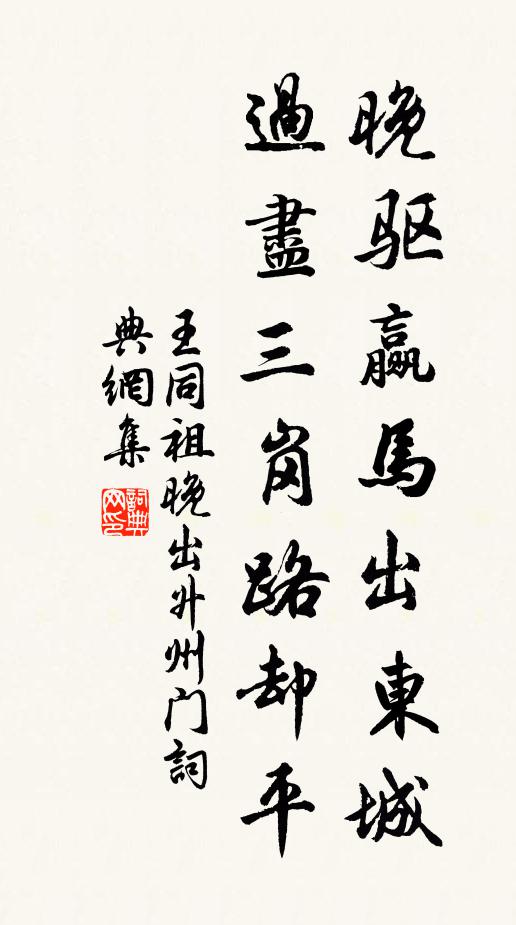 晚驱羸馬出東城
過盡三岗路却平
王同祖晚出升州门詞
典網集
詞典
网印